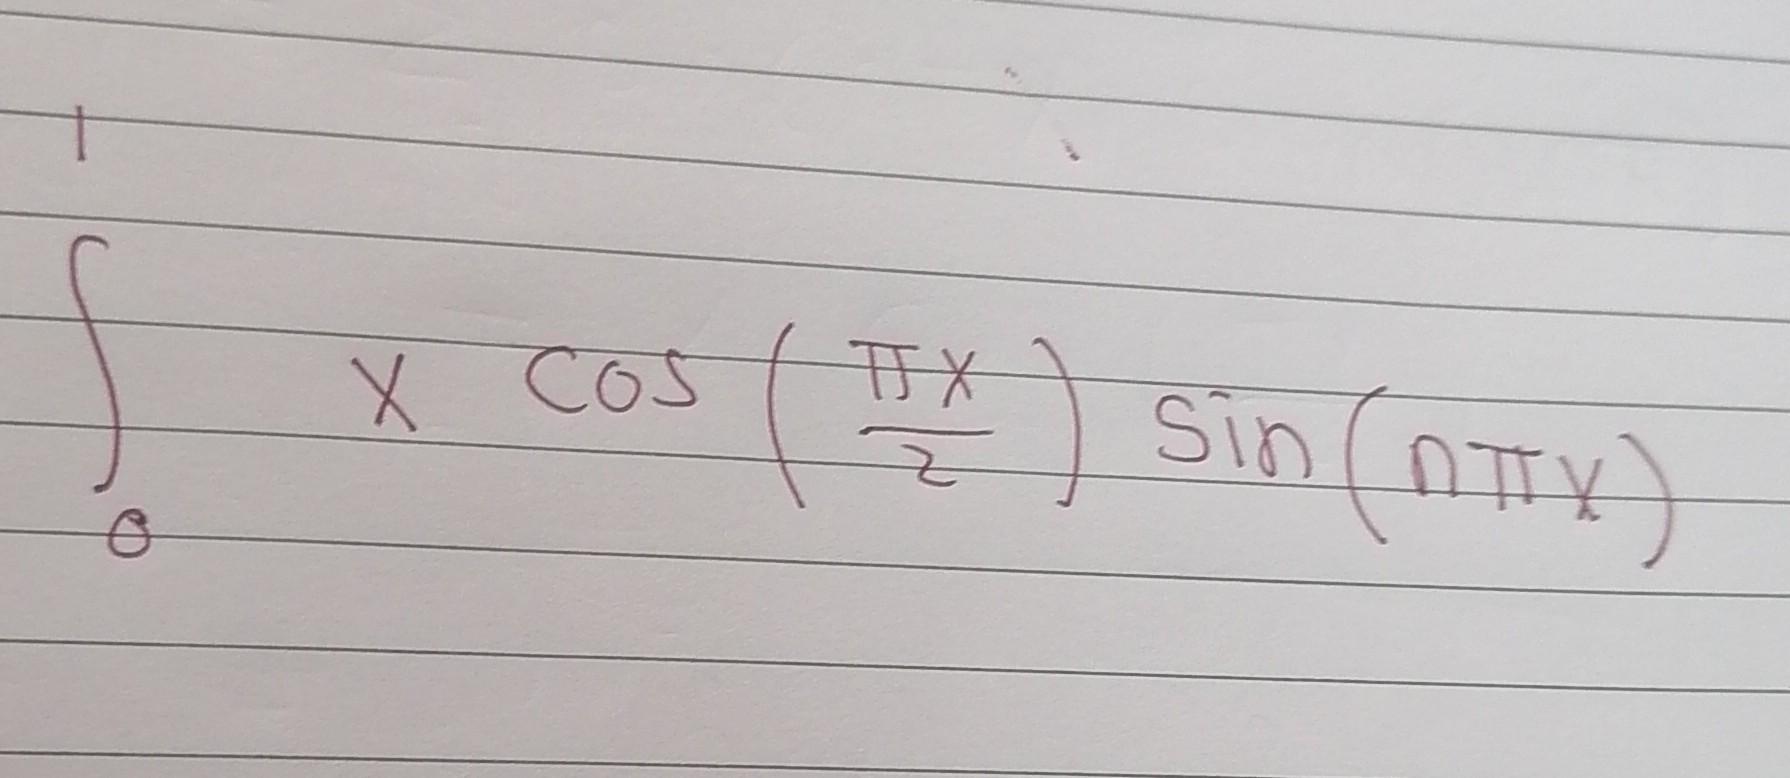 ∫₀¹ x cos(πx/2) sin(nπx)